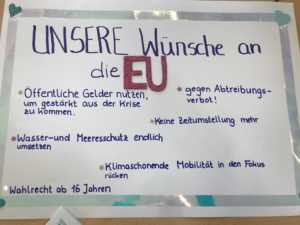 UNSERE Wünsche an
die EU
Öffentliche Gelder nutzen,
um gestärkt aus der Krise
zu kommen.
gegen Abtreibungs-
verbot!
Keine Zeitumstellung mehr
Wasser-und Meeresschutz endlich
umsetzen
Klimaschonende Mobilität in den Fokus
rücken
Wahlrecht ab 16 Jahren